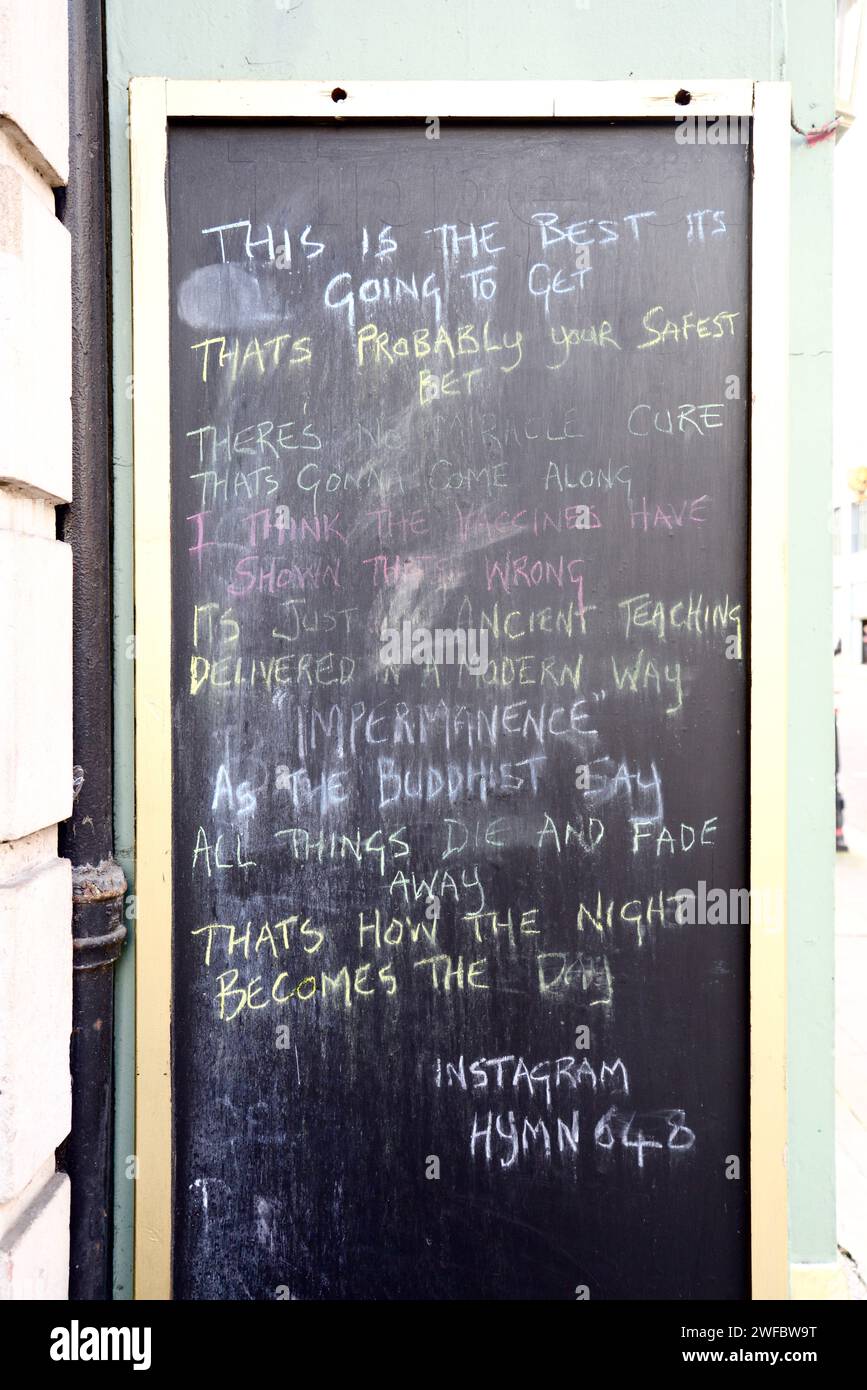 THIS IS THE BEST ITS
GOING TO GET
THATS PROBABLY YOUR SAFEST
BET
THERE'S NO MIRACLE CURE
THATS GONNA COME ALONG
I THINK THE VACCINES HAVE
SHOWN THATS WRONG
ITS JUST AN ANCIENT TEACHING
DELIVERED IN A MODERN WAY
"IMPERMANENCE"
AS THE BUDDHIST SAY
ALL THINGS DIE AND FADE
AWAY
THATS HOW THE NIGHT
BECOMES THE DAY
INSTAGRAM
HYMN 648
alamy
Image ID: 2WFBW9T
www.alamy.com